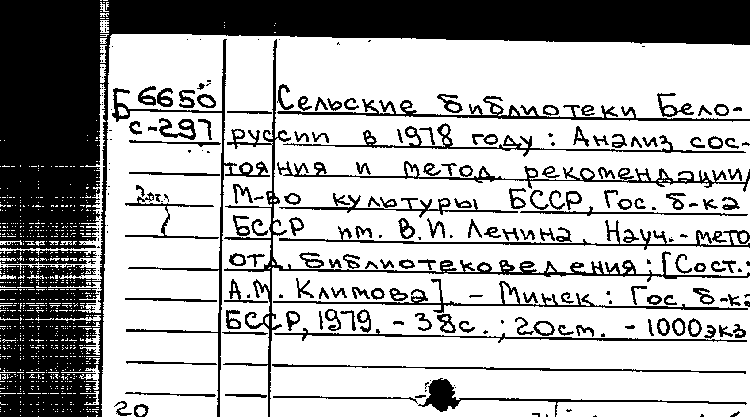 Б 6650 Сельские библиотеки Бело-
с-297 руссии в 1978 году: Анализ сос-
тояния и метод. рекомендации/
М-во культуры БССР, Гос. б-ка
БССР им. В.И. Ленина. Науч.-мето
отд. библиотековедения; [Сост.:
А.М. Климова]. - Минск: Гос. б-ка
БССР, 1979. - 38с.; 20см. - 1000экз
20